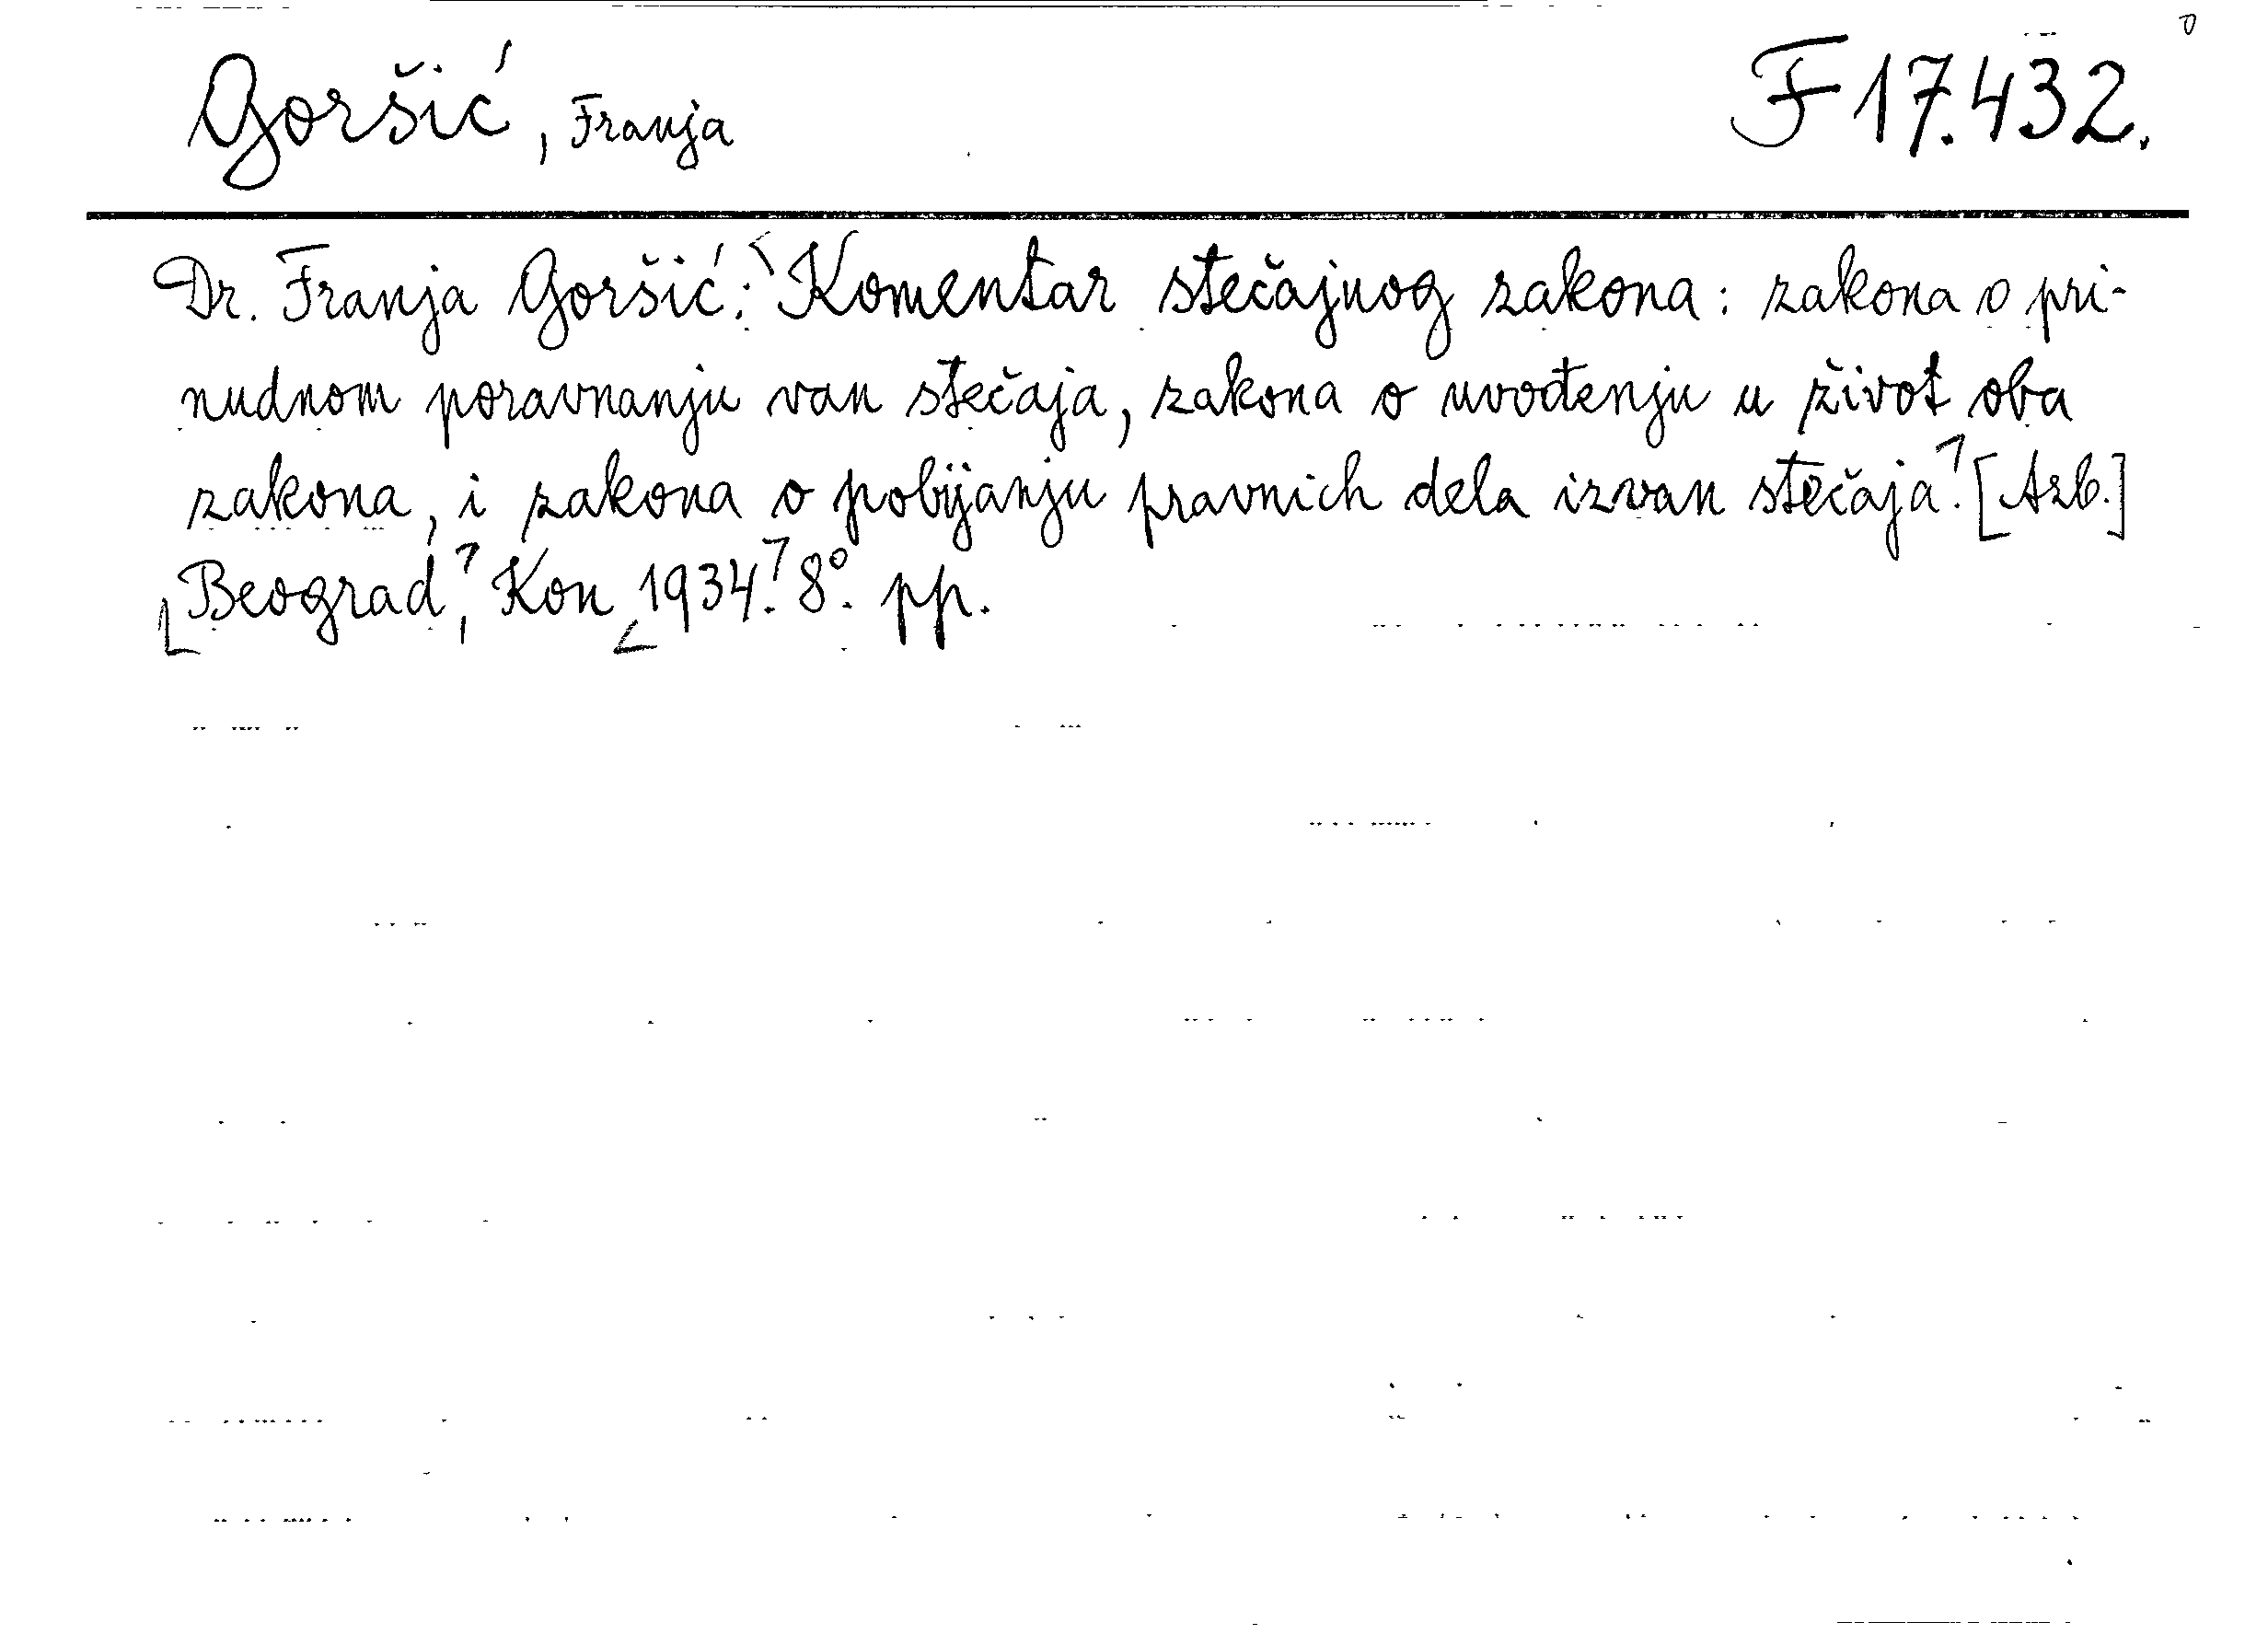 Goršić, Franja
F 17.432.
Dr. Franja Goršić: Komentar stečajnog zakona: zakona o pri-
nudnom poravnanju van stečaja, zakona o uvođenju u život oba
zakona, i zakona o pobijanju pravnich dela izvan stečaja. [Azb.]
Beograd, Kon 1934. 8°. pp.